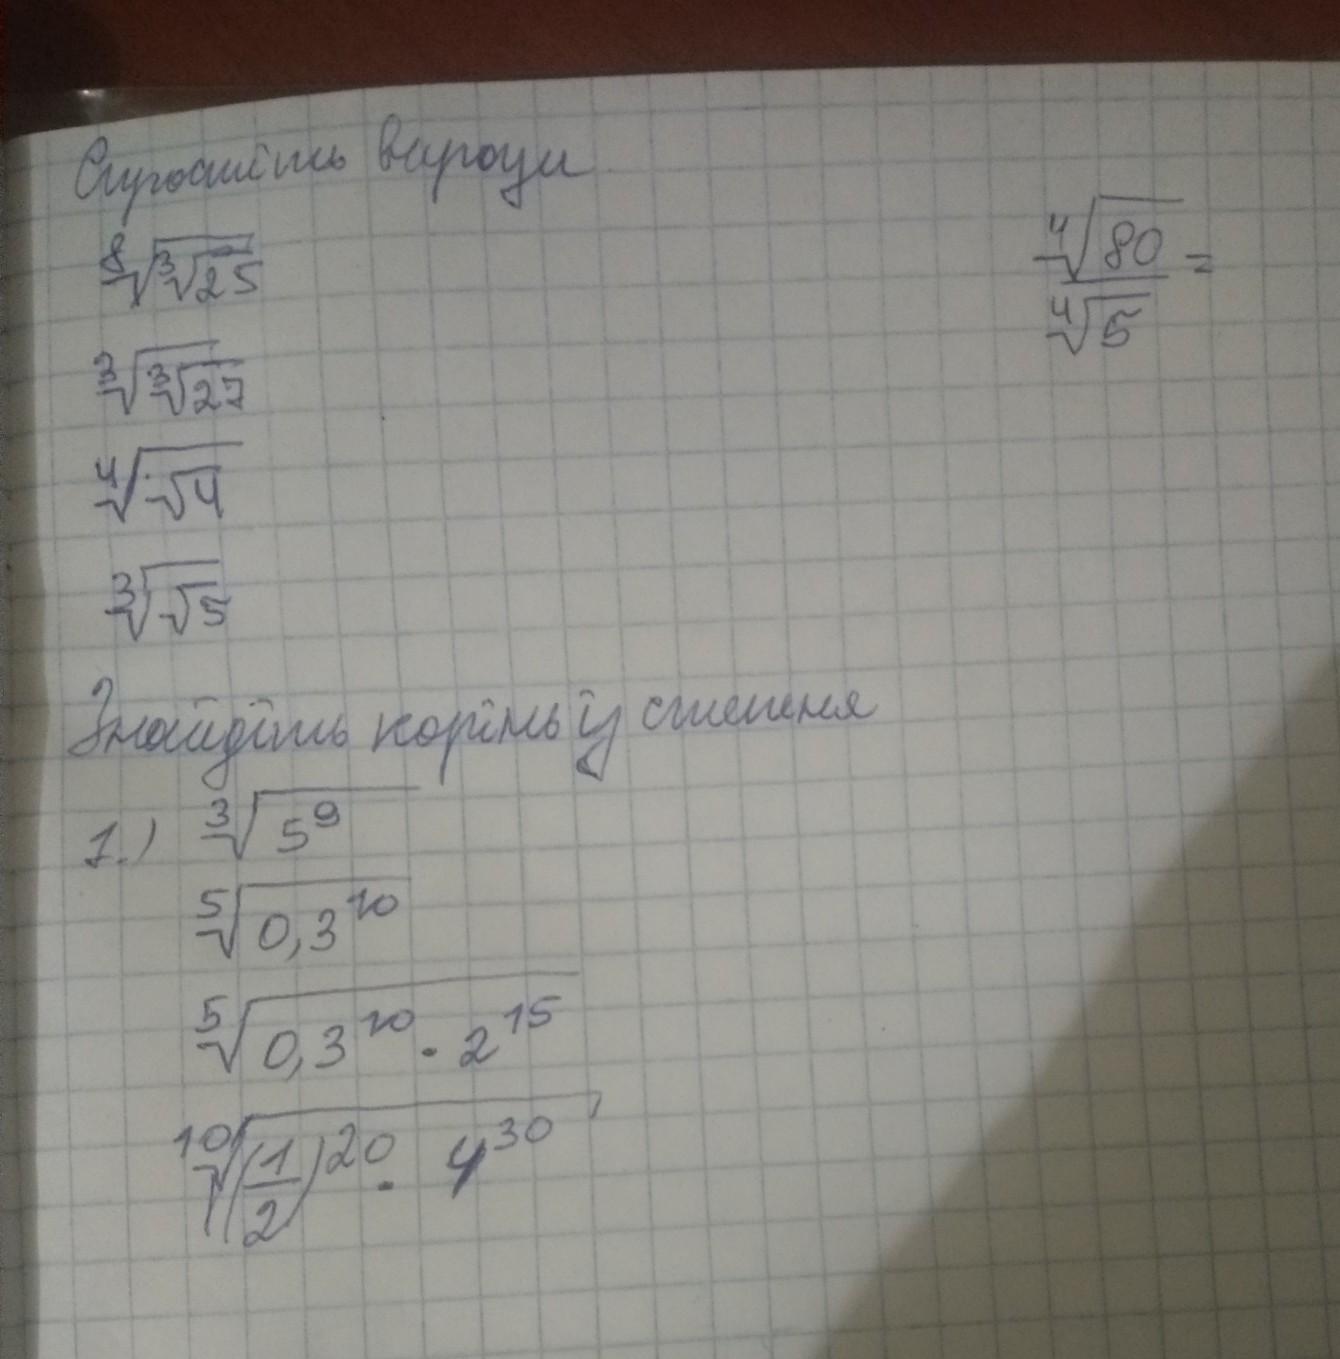 Спростіть вирази
⁸√(³√25)
³√(³√27)
⁴√(√4)
³√(√5)
⁴√80 / ⁴√5 =
Знайдіть корінь із степеня
1.) ³√(5⁹)
⁵√(0,3¹⁰)
⁵√(0,3¹⁰ · 2¹⁵)
¹⁰√((1/2)²⁰ · 4³⁰)